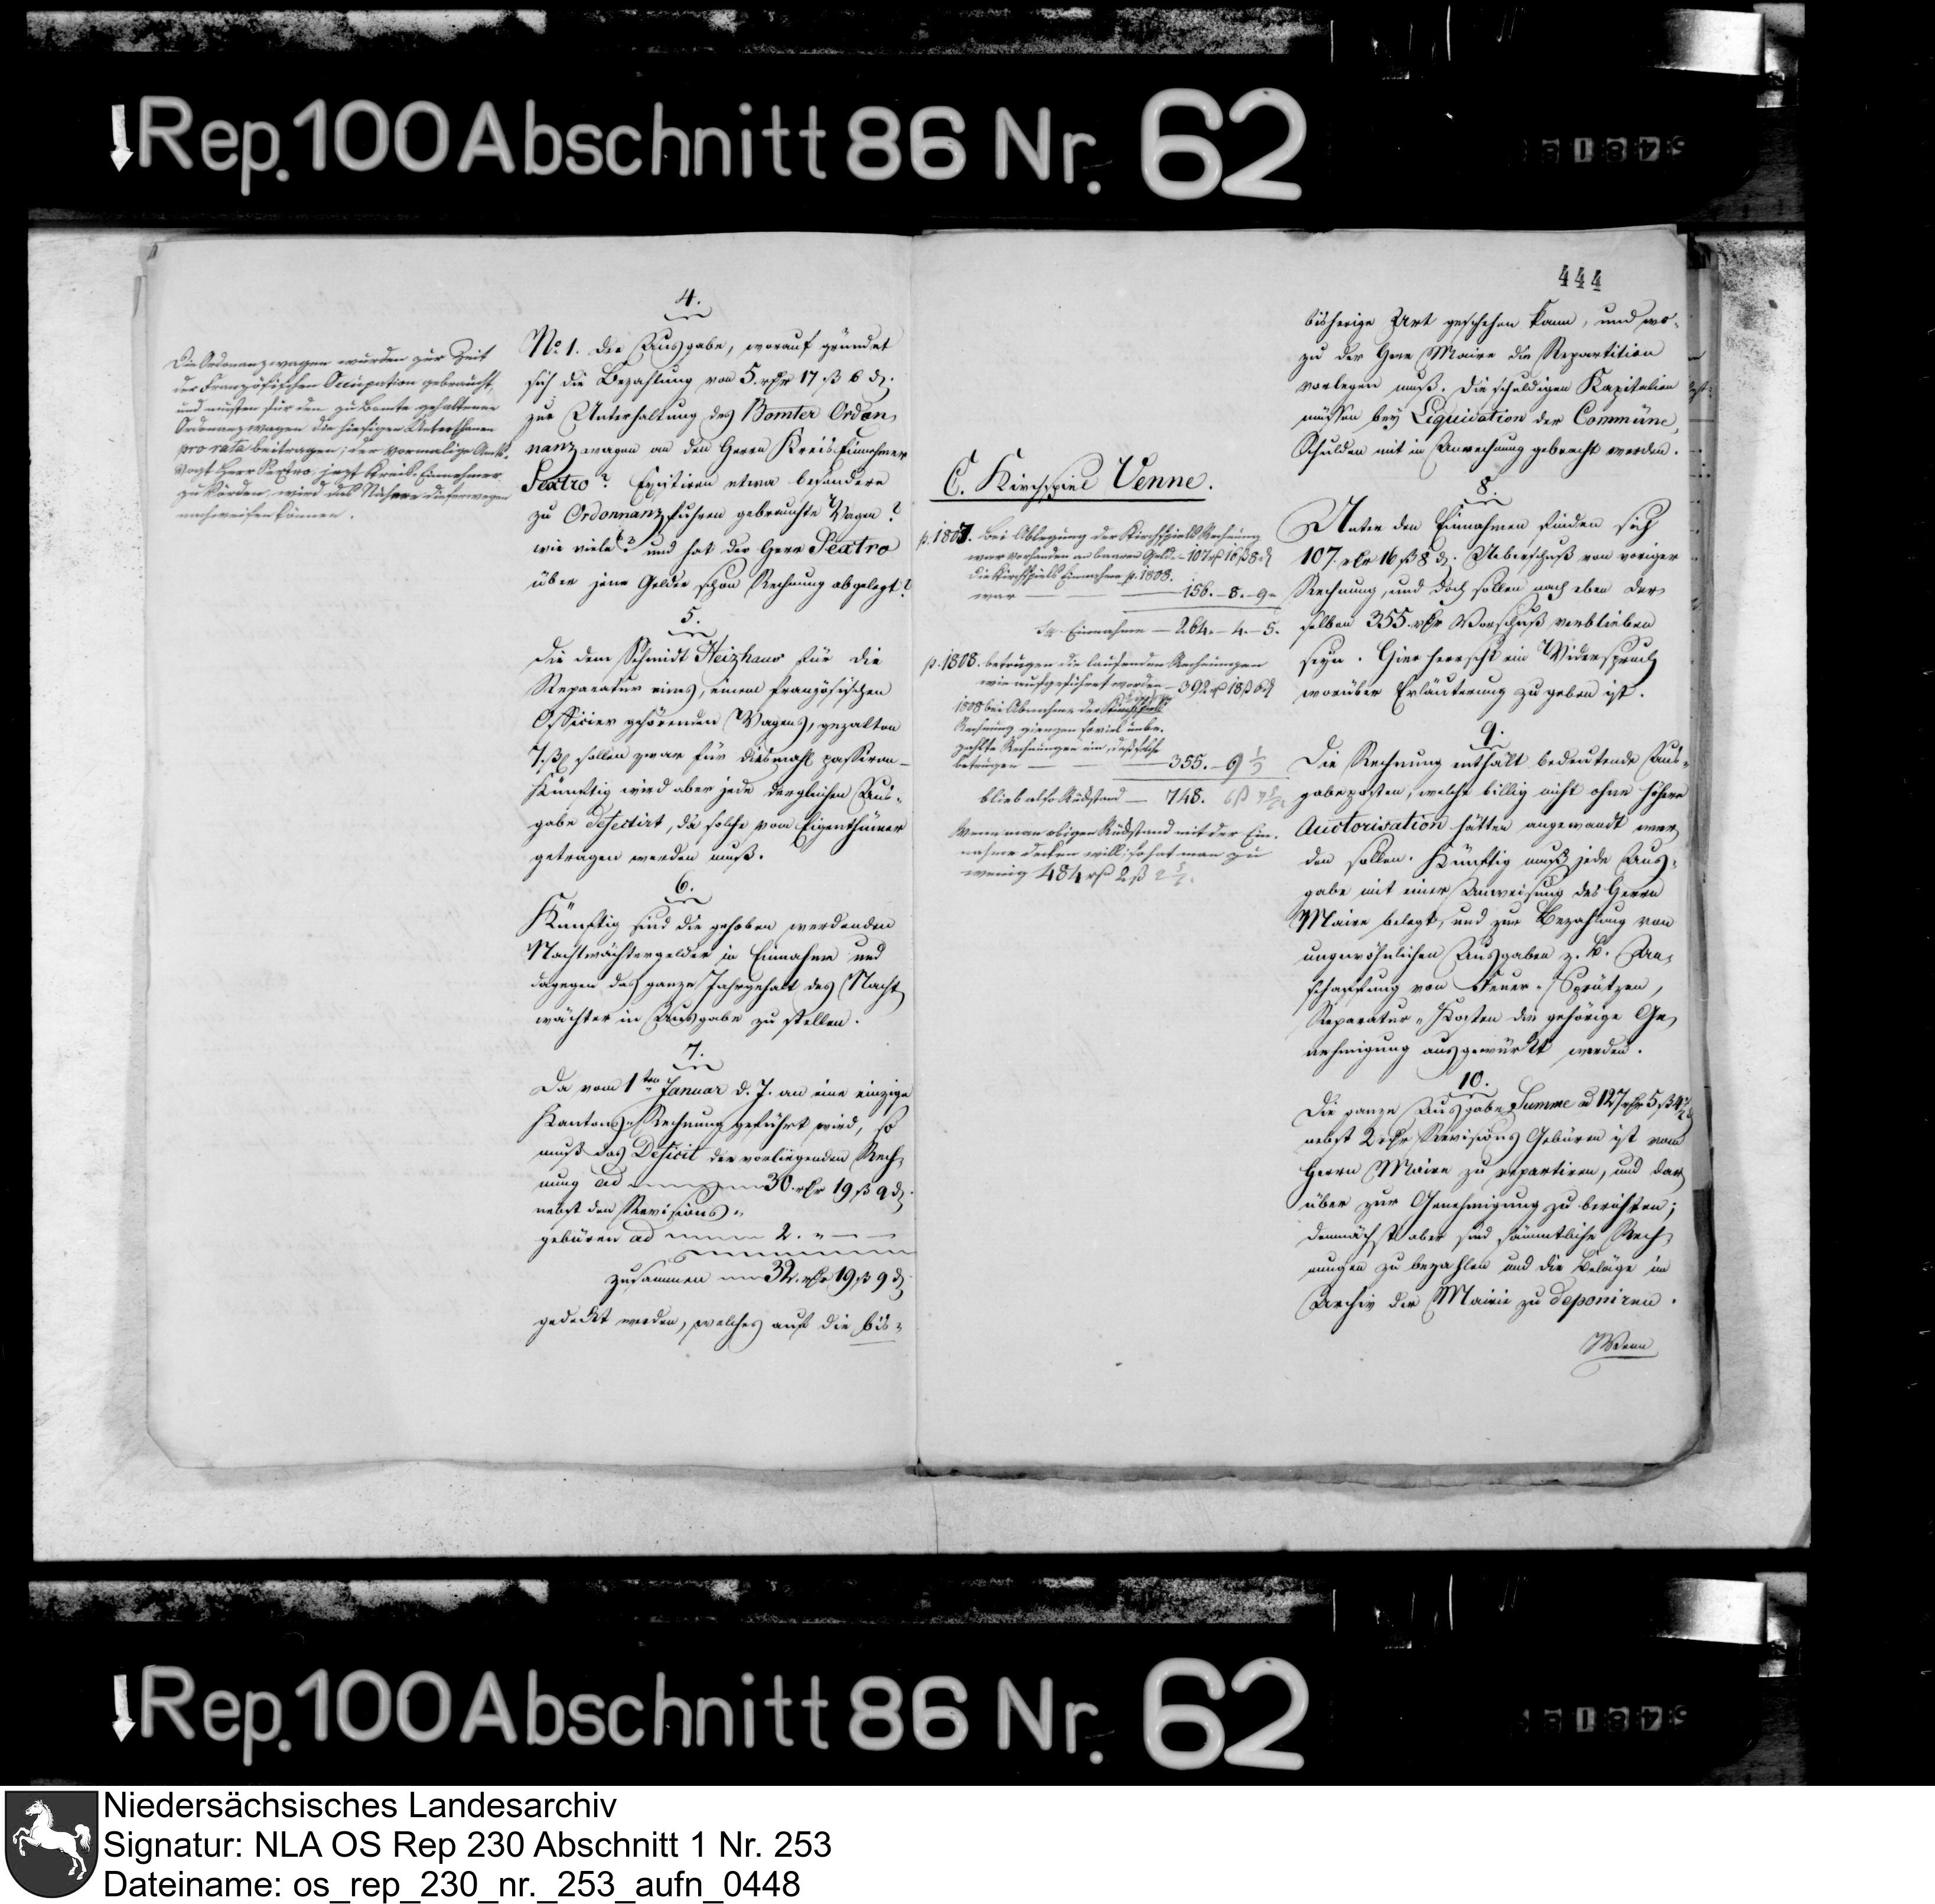 Rep. 100 Abschnitt 86 Nr. 62
4.
No 1. der Ausgabe, worauf gründet
sich die Bezahlung von 5. rthr 17 ß 6 d.
zur Unterhaltung des Bomter Ordon,
nanz wagen an den Herrn Kreis-Einnehmer
Sextro? Existiren etwa besondere
zu Ordonnanzfuhren gebrauchte Wagen?
wie viele? und hat der Herr Sextro
über jene Gelder schon Rechnung abgelegt?
Die Ordonanzwagen wurden zur Zeit
der Französischen Occupation gebraucht,
und musten für den zu Bomte gehaltenen
Ordonanzwagen die hiesigen Unterthanen
pro rata beitragen; der vormalige Amts-
vogt Herr Sextro, jezt Kreis-Einnehmer
zu Vörden, wird das Nähere dieserwegen
nachweisen können.
5.
Die dem Schmidt Heizhaus für die
Reparatur eines, einem französischen
Officier gehörenden Wagens, gezalten
7. ß sollen zwar für diesmahl passiren -
Künftig wird aber jede dergleichen Aus-
gabe defectirt, da solche vom Eigenthümer
getragen werden muß.
6.
Künftig sind die gehoben werdenden
Nachtwächtergelder in Einnahme und
dagegen das ganze Jahrgehalt des Nacht
wächter in Ausgabe zu stellen.
7.
Da vom 1ten Januar d. J. an eine einzige
Kantons-Rechnung geführt wird, so
muß das Deficit der vorliegenden Rech,
nung ad 30. rthr 19 ß 9 d.
nebst den Revisions-
gebüren ad 2. " — —
zusammen 32. rthr 19 ß 9 d.
gedeckt werden, welches auf die bis-
444
bisherige Art geschehen kann, und wo-
zu der Herr Maire die Repartition
vorlegen muß. Die schuldigen Kapitalien
müssen bey Liquidation der Commüne,
Schulden mit in Anrechnung gebracht werden.
C. Kirchspiel Venne.
8.
Unter den Einnahmen finden sich
107. rthr 16 ß 8 d. Ueberschuß von voriger
Rechnung, und doch sollen nach eben der,
selben 355. rthr Vorschuß verblieben
seyn. Hier herrscht ein Widerspruch
worüber Erläuterung zu geben ist.
p. 1807. Bei Ablegung der Kirchspiels Rechnung
war vorhanden an baaren Gelde - 107 rth 16 ß 8 d
die Kirchspiels Einnahme p. 1808.
war — 156. - 8. - 9 -
Einnahme — 264. - 4. - 5.
p. 1808. betrugen die laufenden Rechnungen
wie aufgeführt worden - 392 rth 18 ß 6 d
1808 bei Abnahme der
Rechnung giengen so viel unbe-
zahlte Rechnungen ein, daß solche
betrugen — 355. - 9 1/3
blieb also Rückstand — 748.
Wenn man obigen Rückstand mit der Ein-
nahme decken will; so hat man zu
wenig 484 rth 2 ß
9.
Die Rechnung enthält bedeutende Aus-
gabeposten, welche billig nicht ohne höhere
Auctorisation hätten angewandt wer,
den sollen. Künftig muß jede Aus-
gabe mit einer Anweisung des Herrn
Maire belegt, und zur Bezahlung von
ungewöhnlichen Ausgaben z. B. An,
schaffung von Feuer-Sprützen,
Reparatur-Kosten die gehörige Ge,
nehmigung ausgewürkt werden.
10.
Die ganze Ausgabe Summe ad 127 rthr 5 ß
nebst 2 rthr Revisions Gebüren ist vom
Herrn Maire zu repartiren, und dar,
über zur Genehmigung zu berichten;
demnächst aber sind sämmtliche Rech,
nungen zu bezahlen und die Beläge im
Archiv der Mairie zu deponiren.
Wenn
Rep. 100 Abschnitt 86 Nr. 62
Niedersächsisches Landesarchiv
Signatur: NLA OS Rep 230 Abschnitt 1 Nr. 253
Dateiname: os_rep_230_nr._253_aufn_0448